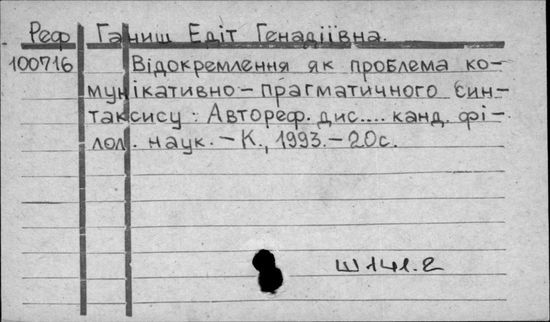 Реф Ганиш Едіт Генадіївна.
100716 Відокремлення як проблема ко-
мунікативно-прагматичного син-
таксису : Автореф. дис.... канд. фі-
лол. наук. - К., 1993. - 20с.
Ш141.2